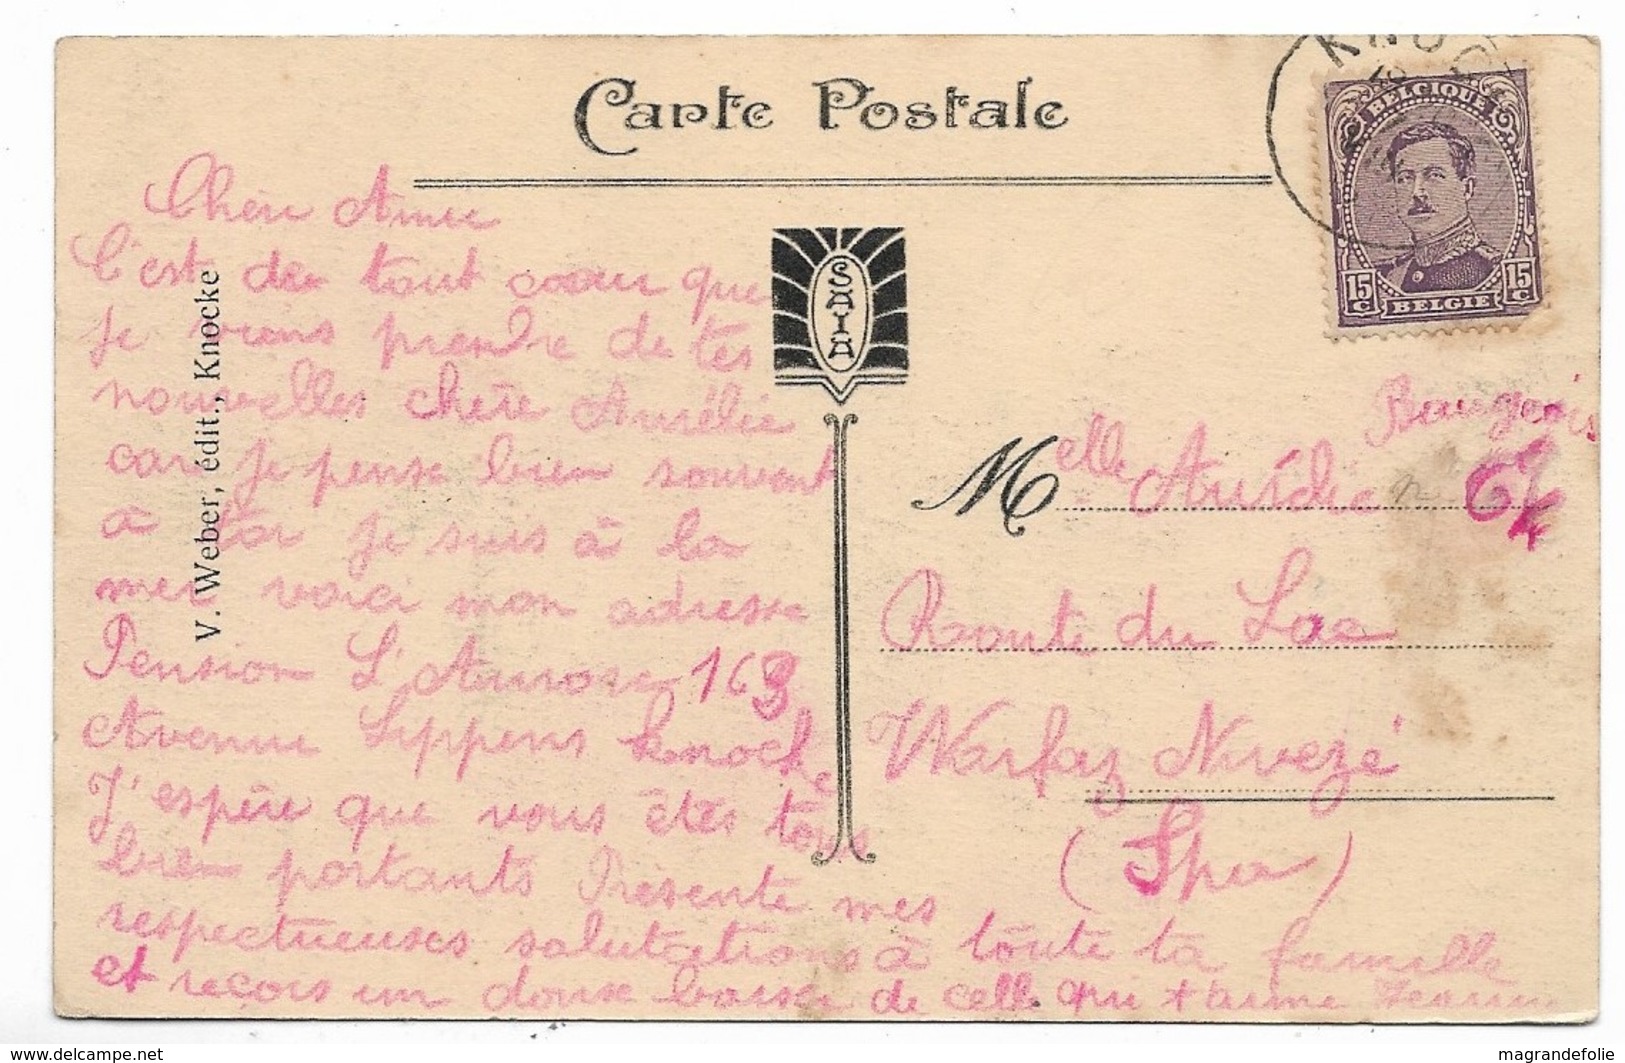 Carte Postale
KNOC
BELGIQUE
15 C 15 C
BELGIE
SAIA
V. Weber, édit., Knocke
Chère Amie
C'est de tout cœur que
je viens prendre de tes
nouvelles chère Aurélie
car je pense bien souvent
à toi je suis à la
mer voici mon adresse
Pension L'Aurore 163
Avenue Lippens Knocke
J'espère que vous êtes tous
bien portants Présente mes
respectueuses salutations à toute ta famille
et reçois un doux baiser de celle qui t'aime Jeanne
Melle Aurélie Bourgeois
n 64
Route du Lac
Warfaz Nivezé
(Spa)
www.delcampe.net
magrandefolie